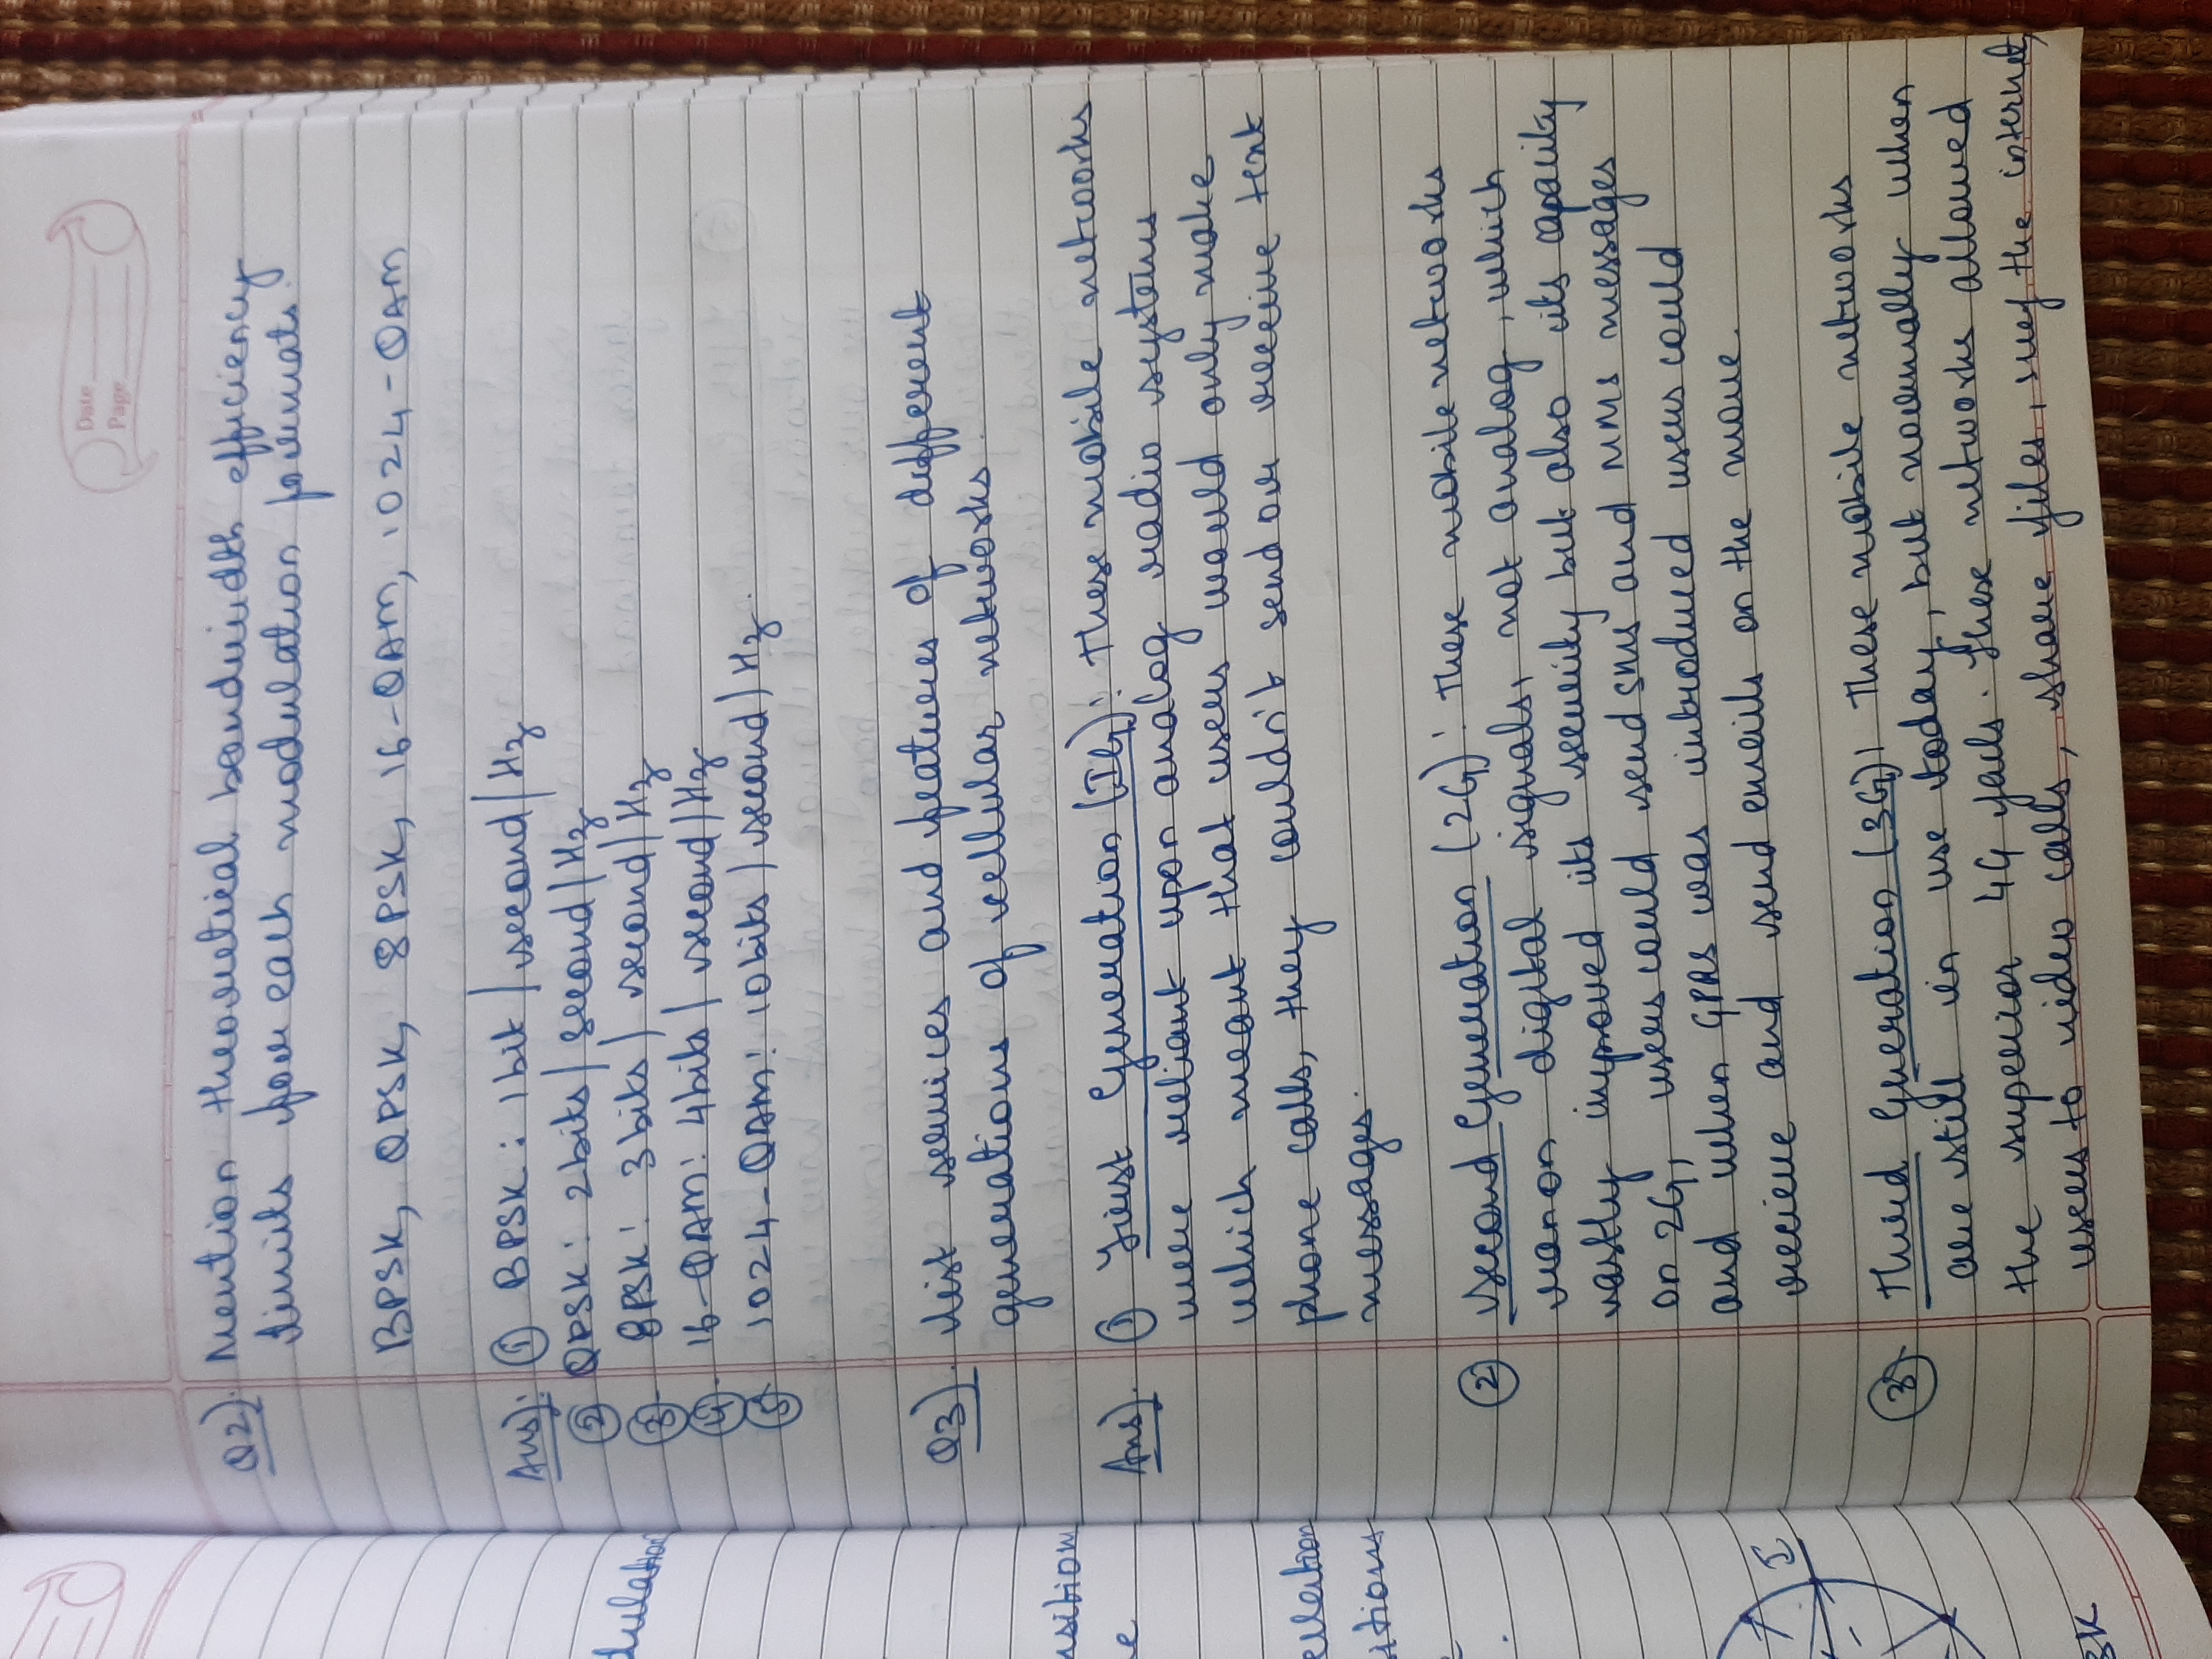 Date
Page
Q2). Mention theoretical bandwidth efficiency
limits for each modulation formats.
BPSK, QPSK, 8PSK, 16-QAM, 1024-QAM
Ans): ① BPSK : 1bit / second / Hz
② QPSK: 2bits / second / Hz
③ 8PSK: 3bits / second / Hz
④ 16-QAM: 4bits / second / Hz
⑤ 1024-QAM: 10bits / second / Hz.
Q3). List services and features of different
generations of cellular networks.
Ans). ① First Generation (IG): These mobile networks
were reliant upon analog radio systems
which meant that users would only make
phone calls, they couldn't send or receive text
messages.
② Second Generation (2G): These mobile networks
ran on digital signals, not analog, which
vastly improved its security but also its capacity
on 2G, users could send SMS and MMS messages
and when GPRS was introduced users could
recieve and send emails on the move.
③ Third Generation (3G): These mobile networks
are still in use today, but normally when
the superior 4G fails. These networks allowed
users to video calls, share files, surf the internet,
dulation
nsition
e
itions
I
SK